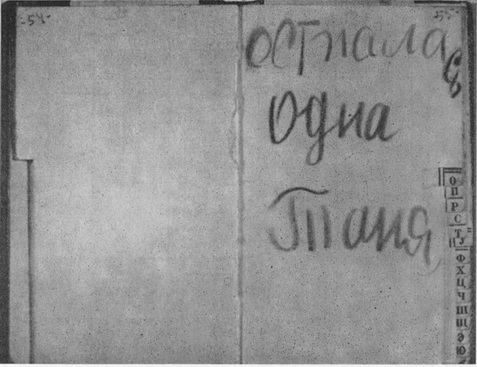 -54-
-55-
осталась
одна
Таня
О
П
Р
С
Т
У
Ф
Х
Ц
Ч
Ш
Щ
Э
Ю